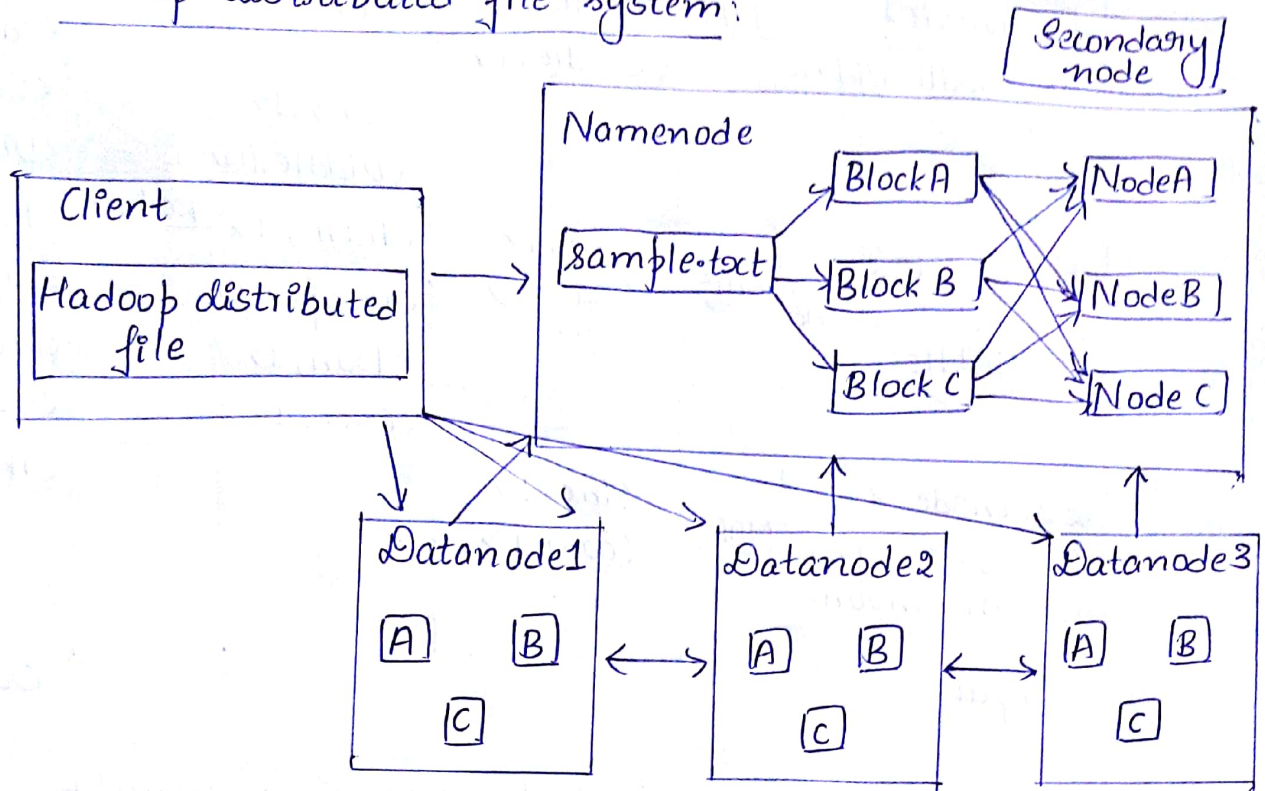 distributed file system:
Secondary
node
Namenode
Client
Hadoop distributed
file
sample.txt
Block A
Block B
Block C
Node A
Node B
Node C
Datanode1
A B
C
Datanode2
A B
C
Datanode3
A B
C